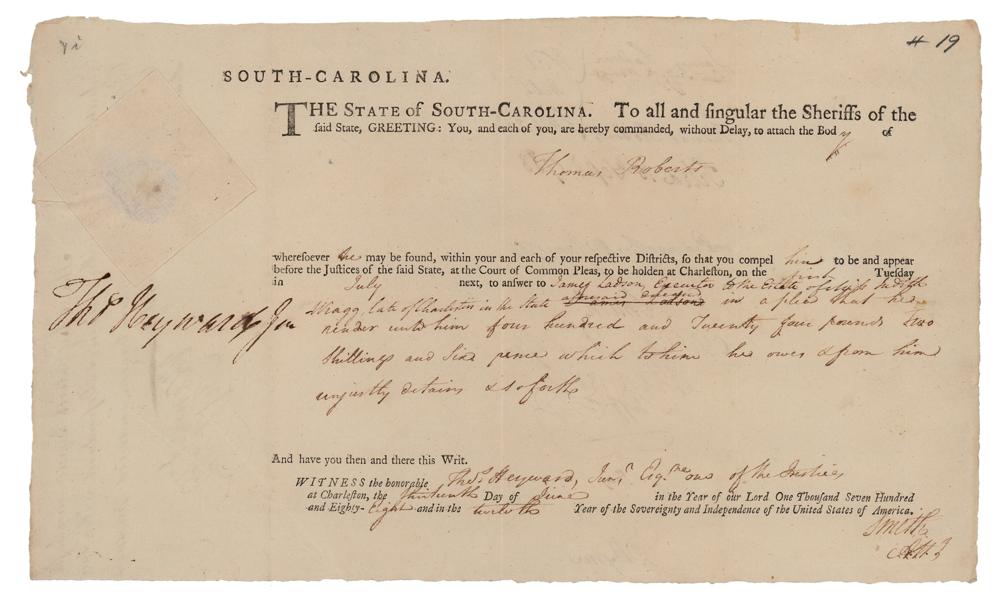 # 19
SOUTH-CAROLINA.
THE STATE of SOUTH-CAROLINA. To all and singular the Sheriffs of the
said State, GREETING: You, and each of you, are hereby commanded, without Delay, to attach the Body of
Thomas Roberts
wheresoever he may be found, within your and each of your respective Districts, so that you compel him to be and appear
before the Justices of the said State, at the Court of Common Pleas, to be holden at Charleston, on the first Tuesday
in July next, to answer to James Ladson, Executor to the Estate of Judith
Wragg, late of Charleston in the State aforesaid deceased in a plea that he
render unto him four hundred and Twenty four pounds Two
Shillings and Six pence which to him he owes & from him
unjustly detains & so forth
Thos Heyward Jun
And have you then and there this Writ.
WITNESS the honorable Thos Heyward, Junr Esqr one of the Justices
at Charleston, the thirteenth Day of June in the Year of our Lord One Thousand Seven Hundred
and Eighty-Eight and in the twelvth Year of the Sovereignty and Independence of the United States of America.
Smith